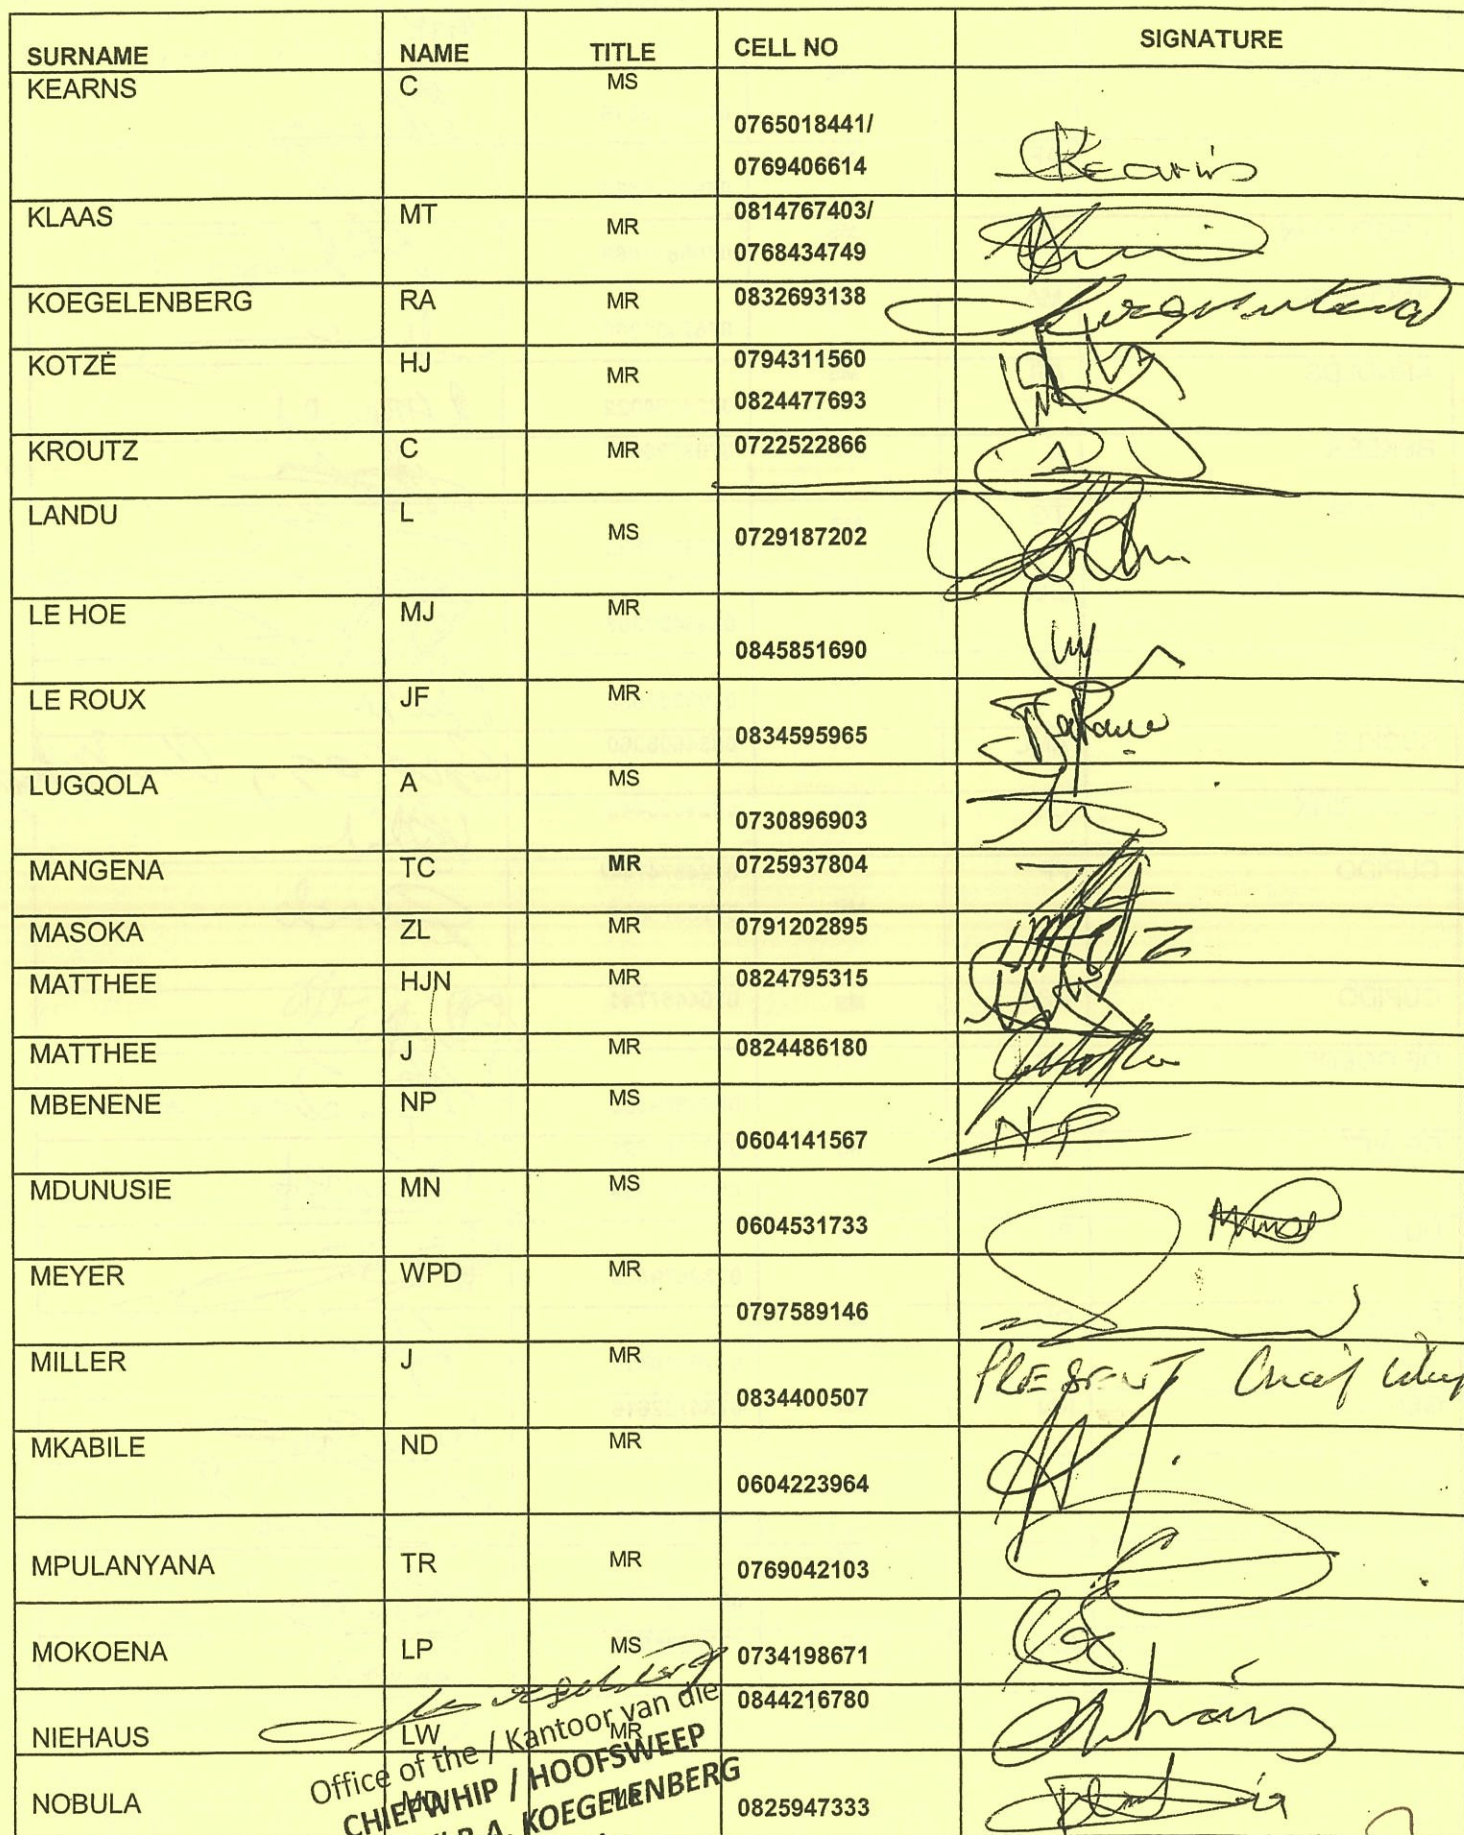 SURNAME NAME TITLE CELL NO SIGNATURE
KEARNS C MS 0765018441/
0769406614 Kearns
KLAAS MT MR 0814767403/
0768434749
KOEGELENBERG RA MR 0832693138
KOTZÉ HJ MR 0794311560
0824477693
KROUTZ C MR 0722522866
LANDU L MS 0729187202
LE HOE MJ MR 0845851690
LE ROUX JF MR 0834595965
LUGQOLA A MS 0730896903
MANGENA TC MR 0725937804
MASOKA ZL MR 0791202895
MATTHEE HJN MR 0824795315
MATTHEE J MR 0824486180
MBENENE NP MS 0604141567 NP
MDUNUSIE MN MS 0604531733
MEYER WPD MR 0797589146
MILLER J MR 0834400507 PRESENT Chief Whip
MKABILE ND MR 0604223964
MPULANYANA TR MR 0769042103
MOKOENA LP MS 0734198671
NIEHAUS LW MR 0844216780
NOBULA MD MR 0825947333
Office of the / Kantoor van die
CHIEFWHIP / HOOFSWEEP
R.A. KOEGELENBERG